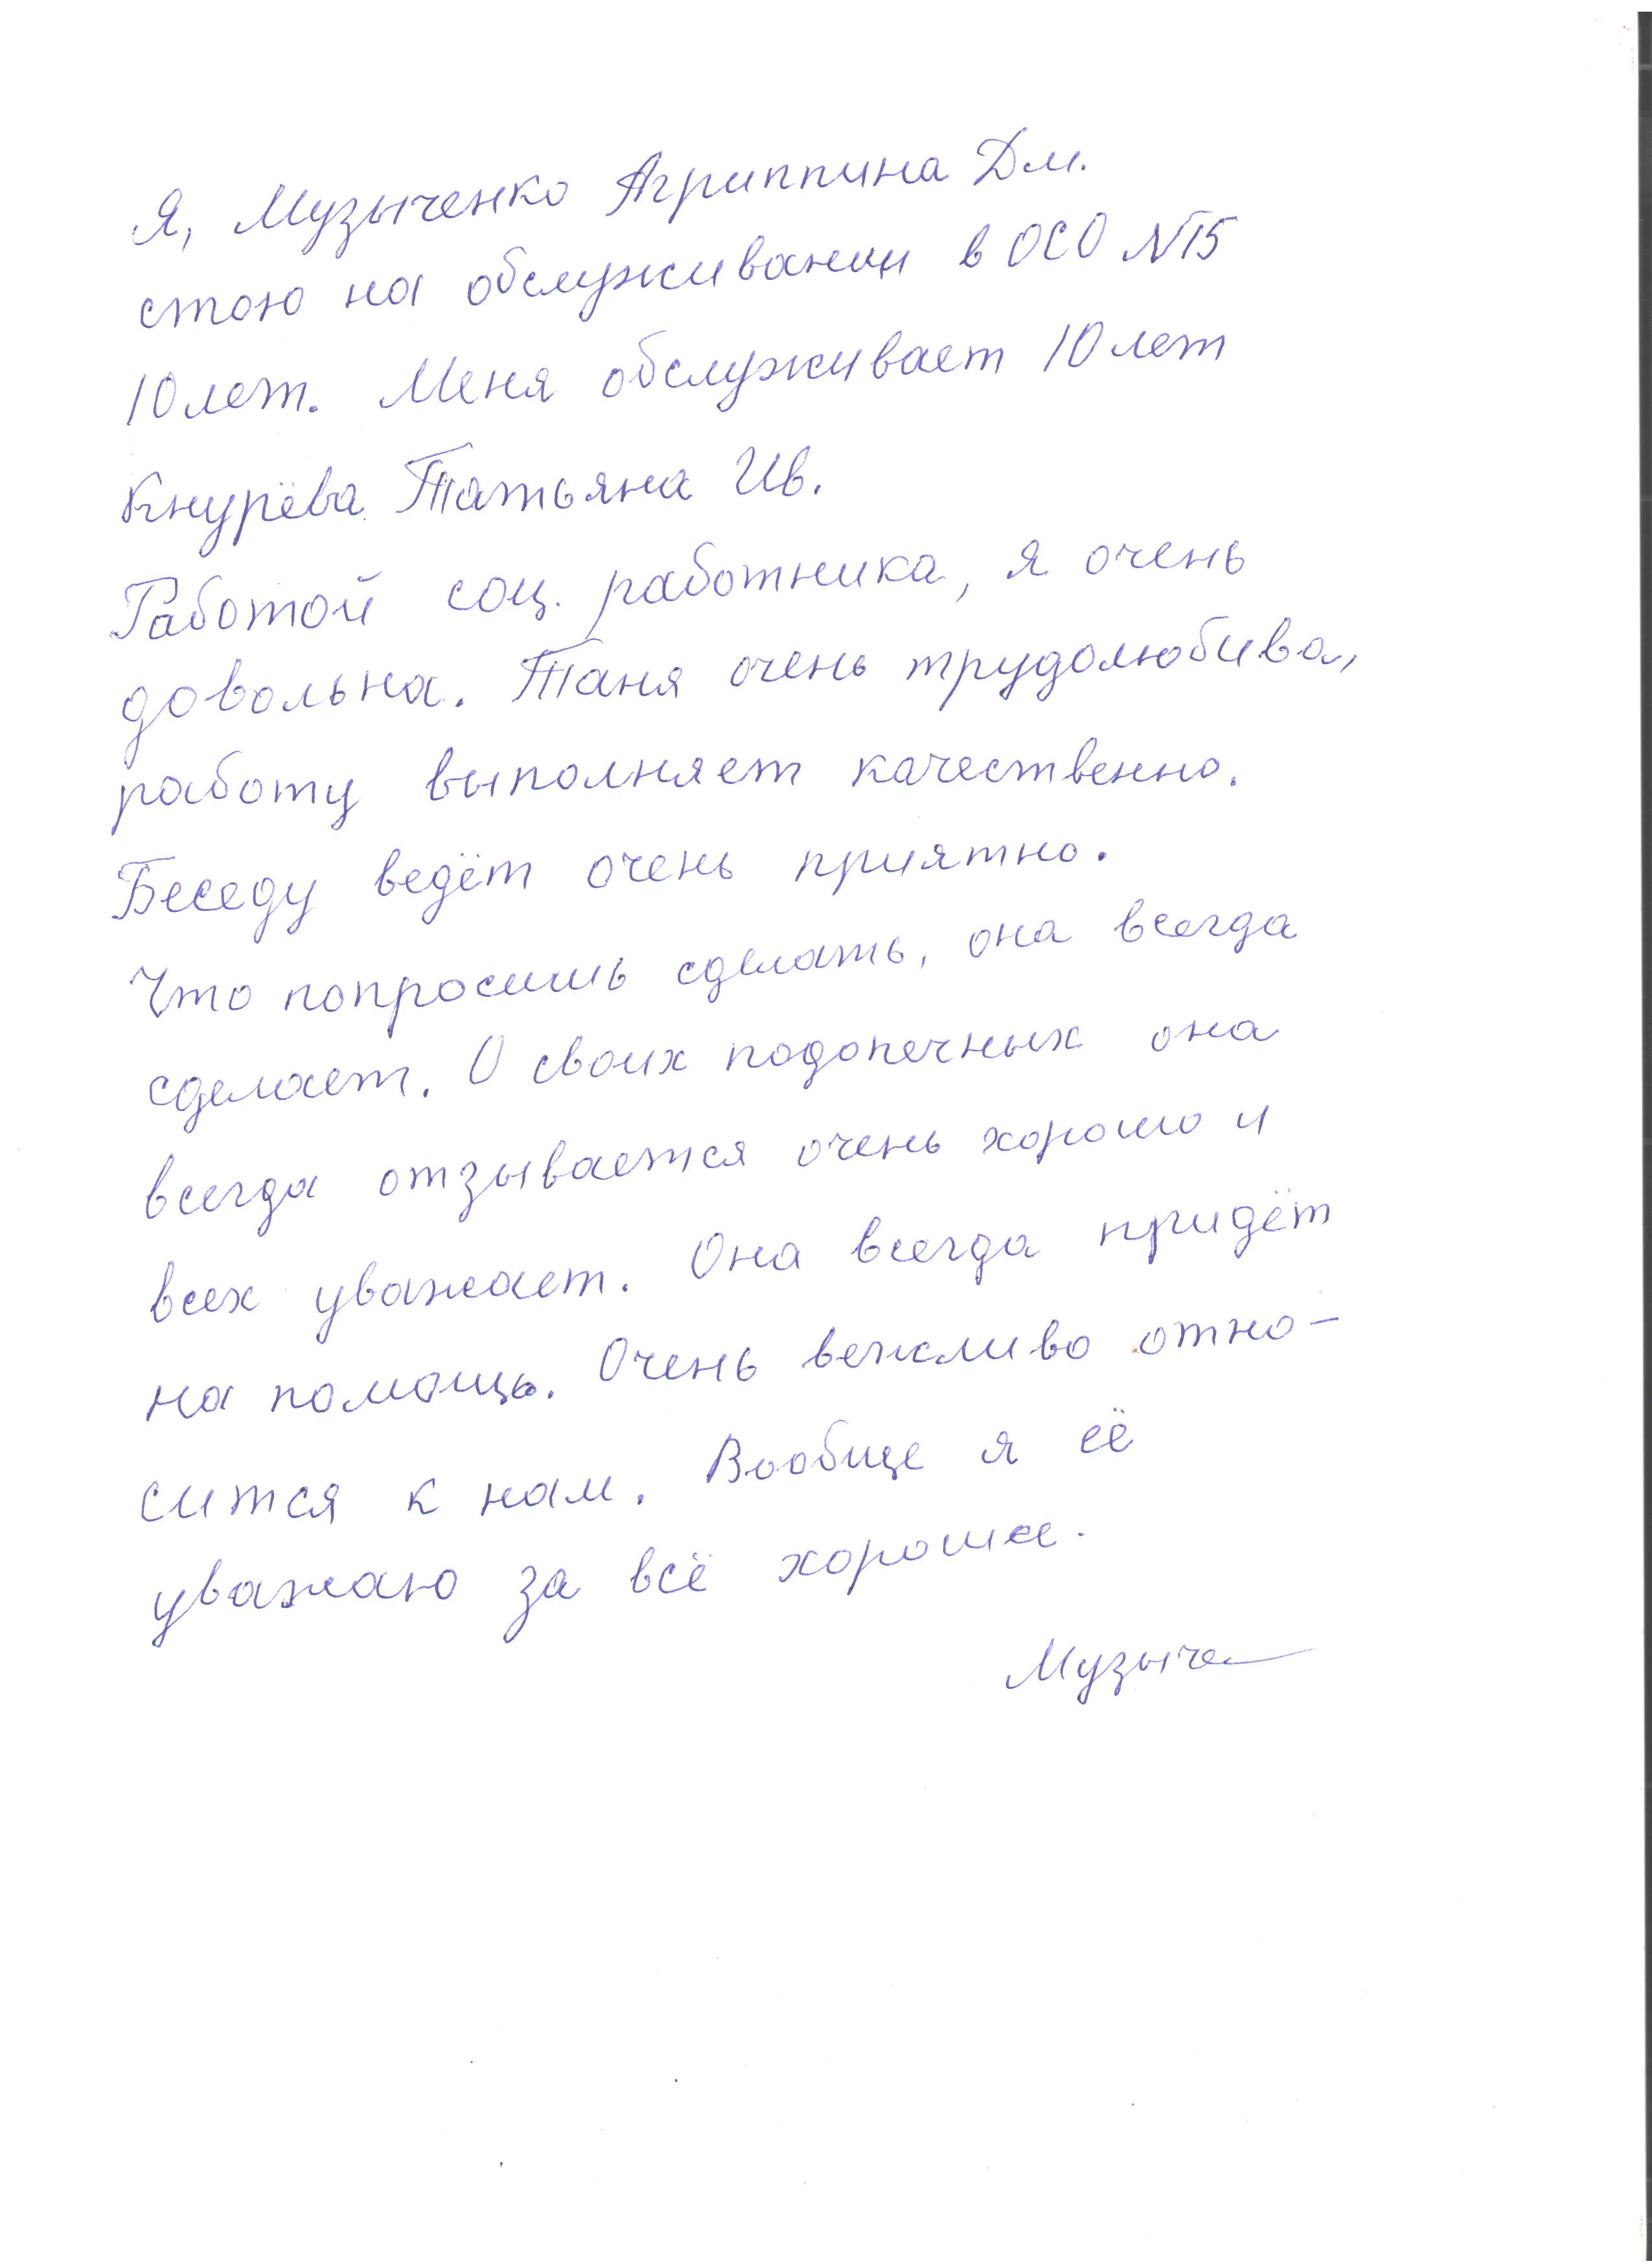 Я, Музыченко Агриппина Дм.
стою на обслуживании в ОСО №15
10 лет. Меня обслуживает 10 лет
Кнурёва Татьяна Ив.
Работой соц. работника, я очень
довольна. Таня очень трудолюбива,
работу выполняет качественно.
Беседу ведёт очень приятно.
Что попросишь сделать, она всегда
сделает. О своих подопечных она
всегда отзывается очень хорошо и
всех уважает. Она всегда придёт
на помощь. Очень вежливо отно-
сится к нам. Вообще я её
уважаю за всё хорошее.
Музыче